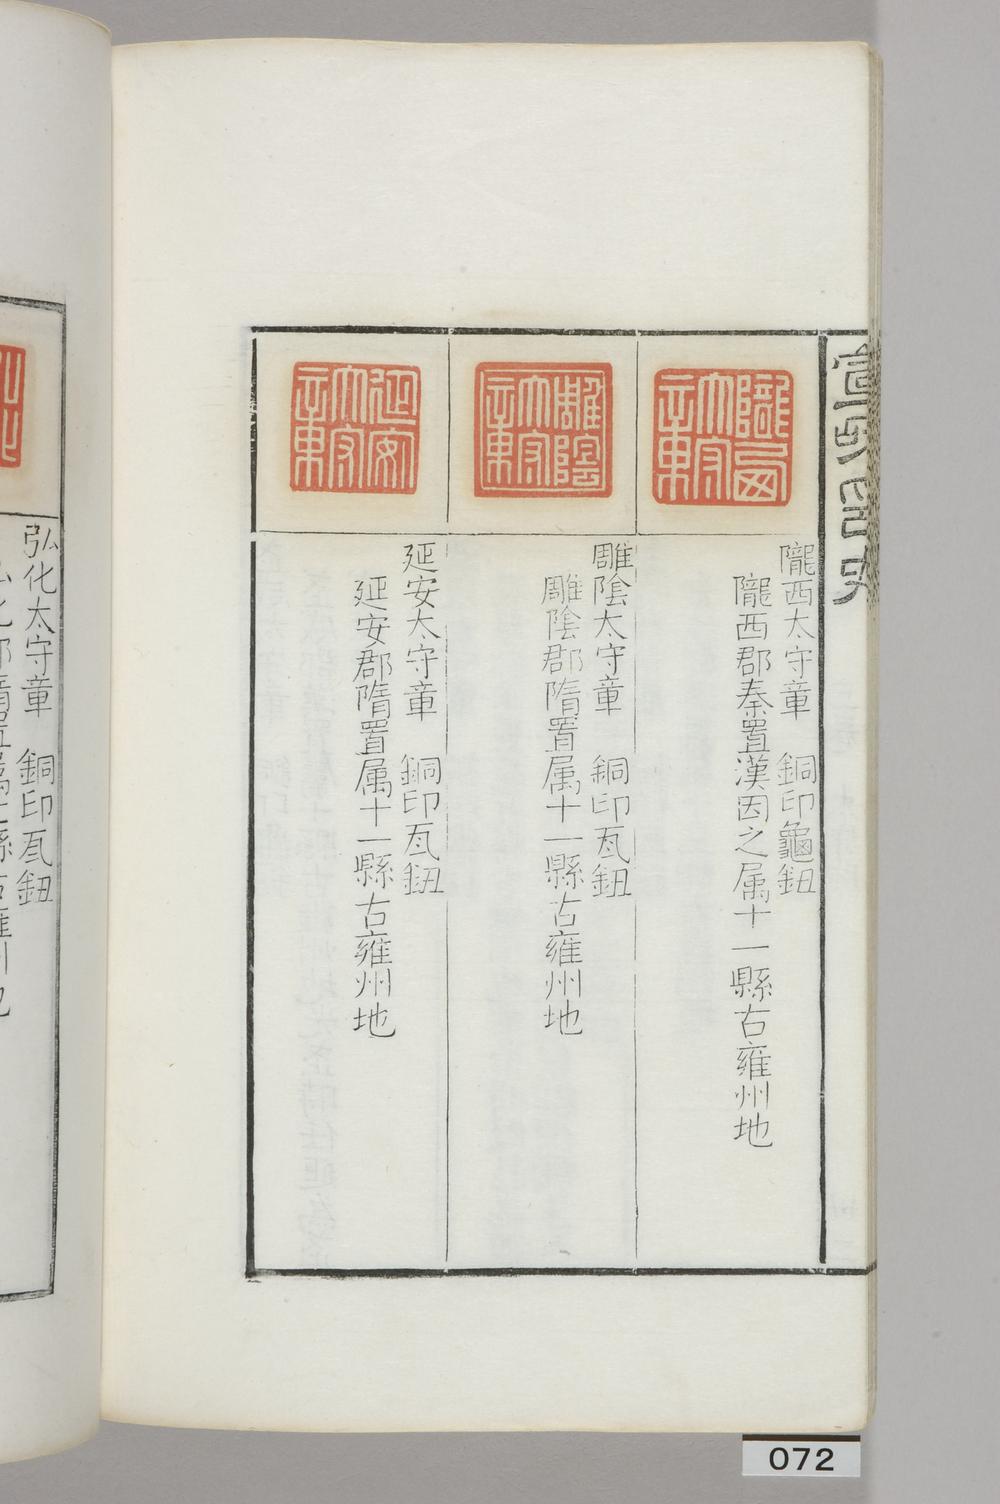 宣和印史
隴西太守章
隴西太守章　銅印龜鈕
隴西郡秦置漢因之属十一縣古雍州地
雕陰太守章
雕陰太守章　銅印瓦鈕
雕陰郡隋置属十一縣古雍州地
延安太守章
延安太守章　銅印瓦鈕
延安郡隋置属十一縣古雍州地
弘化太守章　銅印瓦鈕
072